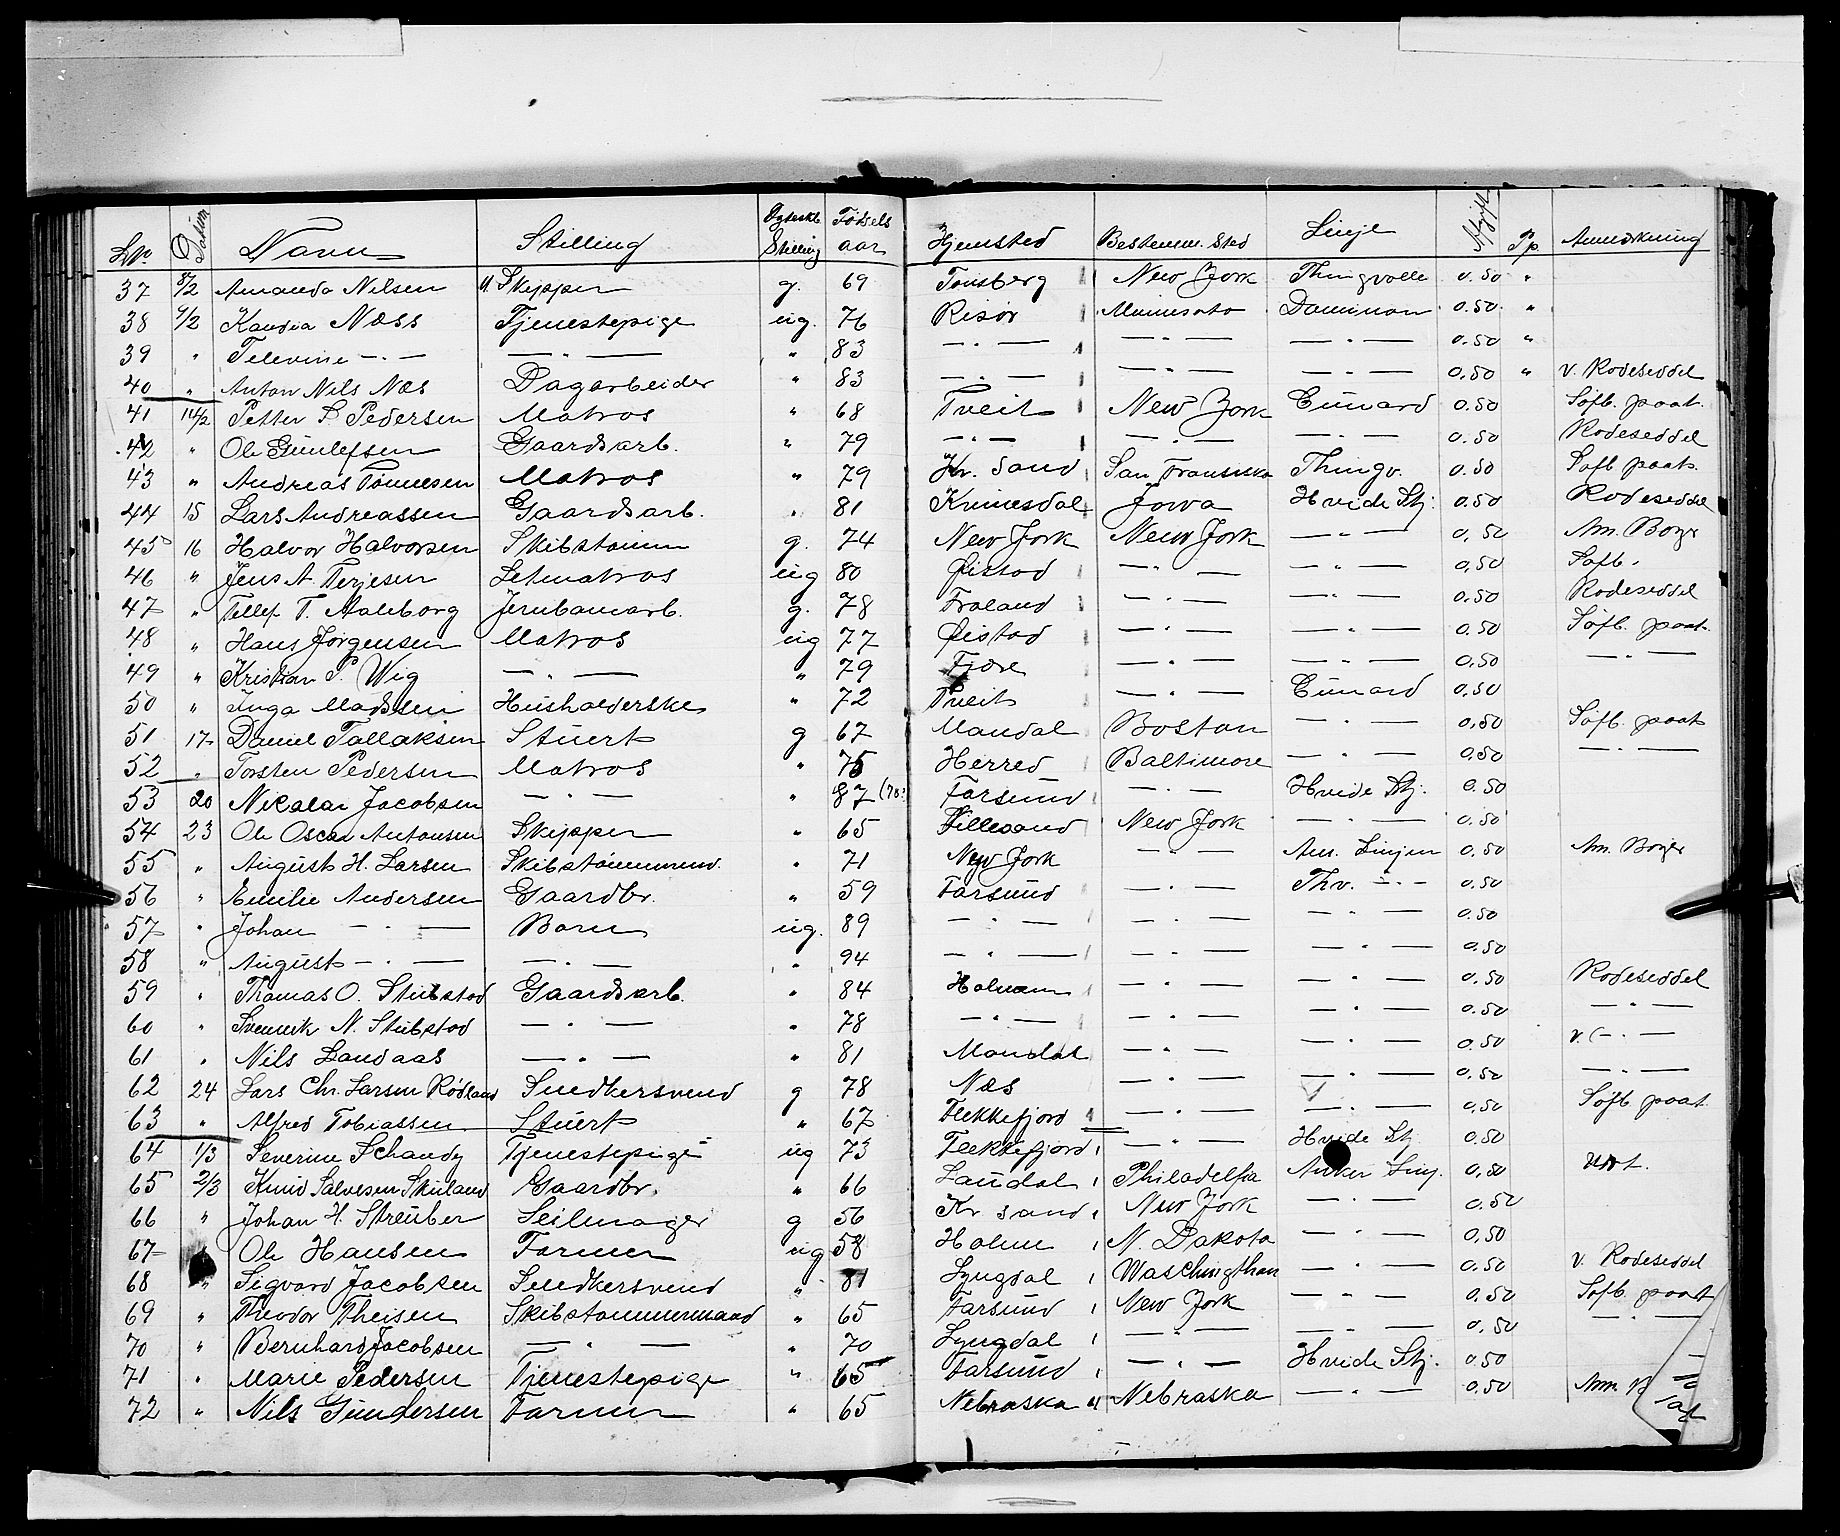 LNo. Datum Navn Stilling Egteskb. Stilling Fødsels aar Hjemsted Bestemm. Sted Linje Afgift Pp Anmærkning
37 8/2 Amanda Nilsen Skipper g. 69 Tønsberg New York Thingvalle 0.50 "
38 9/2 Næss Tjenestepige ug. 76 Risør Minnesota Dominion 0.50 "
39 " Televine — " — — " — " 83 — " — — " — — " — 0.50 "
40 " Anton Nils Næs Dagarbeider " 83 — " — — " — — " — 0.50 " v. Rodeseddel
41 14/2 Petter S. Pedersen Matros " 68 Tveit New York Cunard 0.50 Søfb. paat.
42 " Ole Gunlefsen Gaardsarb. " 79 — " — — " — — " — 0.50 Rodeseddel
43 " Andreas Tønnesen Matros " 79 Kr. Sand San Fransisko Thingv. 0.50 Søfb paat.
44 15 Lars Andreassen Gaardsarb. " 81 Kvinesdal Jowa Hvide Stj. 0.50 Rodeseddel
45 16 Halvor Halvorsen Skibstømm g. 74 New York New York — " — 0,50 Am. Borger
46 " Jens A. Terjesen Letmatros ug 80 Øiestad — " — — " — 0,50 Søfb.
47 " Tellef T. Aaleborg Jernbanearb. g. 78 Froland — " — — " — 0.50 Rodeseddel
48 " Hans Jørgensen Matros ug 77 Øiestad — " — — " — 0.50 Søfb. paat.
49 " Kristian P. Wig — " — " 79 Fjære — " — — " — 0.50 — " —
50 " Inga Madssen Husholderske " 72 Tveit — " — Cunard 0.50
51 17 Daniel Tallaksen Stuert g 67 Mandal Boston — " — 0.50 Søfb. paat
52 " Torsten Pedersen Matros " 75 Herred Baltimore — " — 0.50 — " —
53 20 Nicolai Jacobsen — " — " 87 (70? Farsund — " — Hvide Stj. 0.50
54 23 Ole Oscar Antonsen Skipper " 65 Lillesand New York — " — 0.50
55 " August H. Larsen Skibstømmermd. " 71 New York — " — Am. Linjen 0.50 Am. Borger
56 " Emilie Andersen Gaardbr. " 59 Farsund — " — Thv. — " — 0.50
57 " Johan — " — Barn ug. 89 — " — — " — — " — 0.50
58 " August — " — — " — " 94 — " — — " — — " — 0.50
59 " Thomas O. Stubstad Gaardsarb. " 84 Holmem — " — — " — 0.50 Rodeseddel
60 " N. Stubstad — " — " 78 — " — — " — — " — 0.50 — " —
61 " Nils Landaas — " — " 81 Mandal — " — — " — 0.50 v. — " —
62 24 Lars Chr. Larsen Rødland Snedkersvend g 78 Næs — " — — " — 0.50 — " —
63 " Alfred Tobiassen Stuert " 67 Flekkefjord — " — — " — 0.50 Søfb paat.
64 1/3 Severine Schandy Tjenestepige ug 73 Flekkefjord — " — Hvide Stj 0.50
65 2/3 Knud Salvesen Skuland Gaardbr. " 66 Laudal Philadelfia Anker Linj. 0.50
66 " Johan H. Streuber Seilmager g 56 Kr. sand New York — " — 0.50
67 " Ole Hansen Farmer ug 58 Holum N. Dakota — " — 0.50
68 " Sigvard Jacobsen Snedkersvend " 81 Lyngdal Waschingthon — " — 0.50 v. Rodeseddel
69 " Theodor Theisen Skibstømmermand " 65 Farsund New York — " — 0.50 Søfb. paat
70 " Bernhard Jacobsen — " — " 70 Lyngdal — " — — " — 0.50 — " —
71 " Marie Pedersen Tjenestepige " 65 Farsund — " — Hvide Stj. 0.50
72 " Nils Gundersen Farmer " 65 Nebraska Nebraska — " — 0.50 Am. B